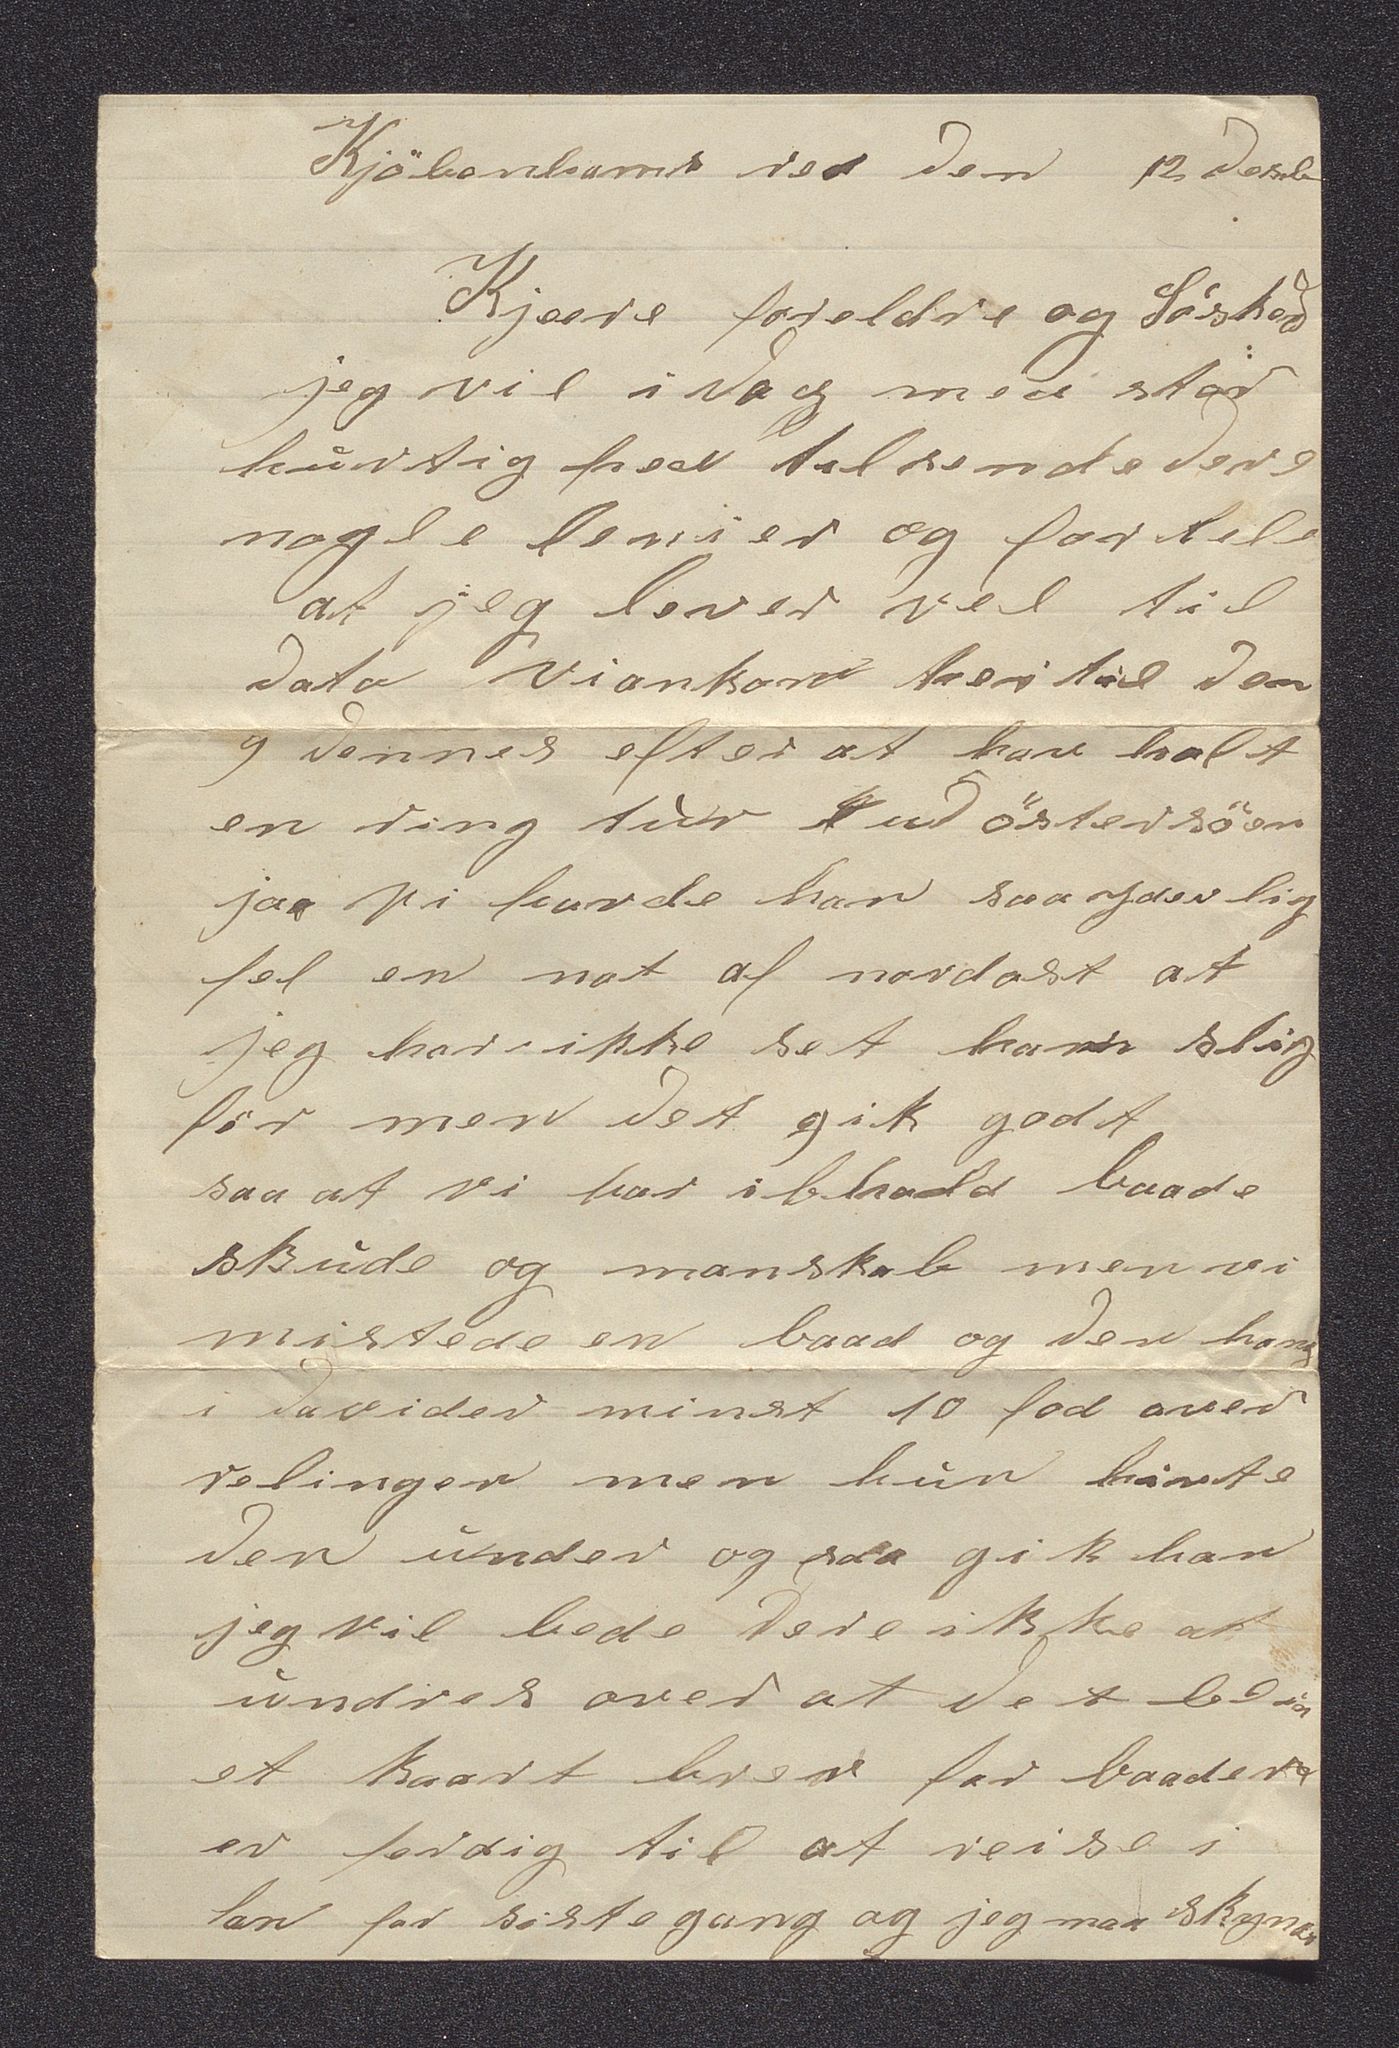 Kjöbenhavns red den 12 desemb
Kjære foreldre og Söskend
jeg vil i dag med stör
hurtig hed tilsende dere
nogle lenier og fortele
at jeg lever vel til
dato vi ankom her til den
9 dennes efter at hav halt
en ring tur i ud östersöen
jaa vi havde han saa yderlig
fel en nat af nordost at
jeg har ikke set havn slig
för men det gik godt
saa at vi har i behold baade
skude og manskab men vi
mistede en baad og den hang
i davider minst 10 fod over
relingen men hun hivte
den under og saa gik han
jeg vil bede dere ikke at
undres over at det blir
et kaart brev for baadene
er ferdig til at reise i
lan for siste gang og jeg maa skynde